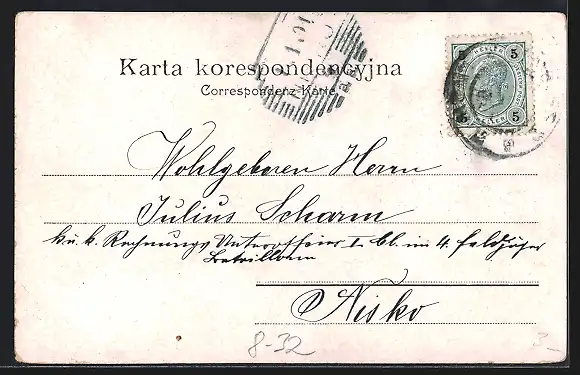 Karta korespondencyjna
Correspondenz-Karte
5 HELLER 5
5 HELLER 5
Wohlgeboren Herrn
Julius Scharm
k.u.k. Rechnungs Unterofficier I. Cl. im 4. Feldjäger
Bataillon
Nisko
8-32
3-